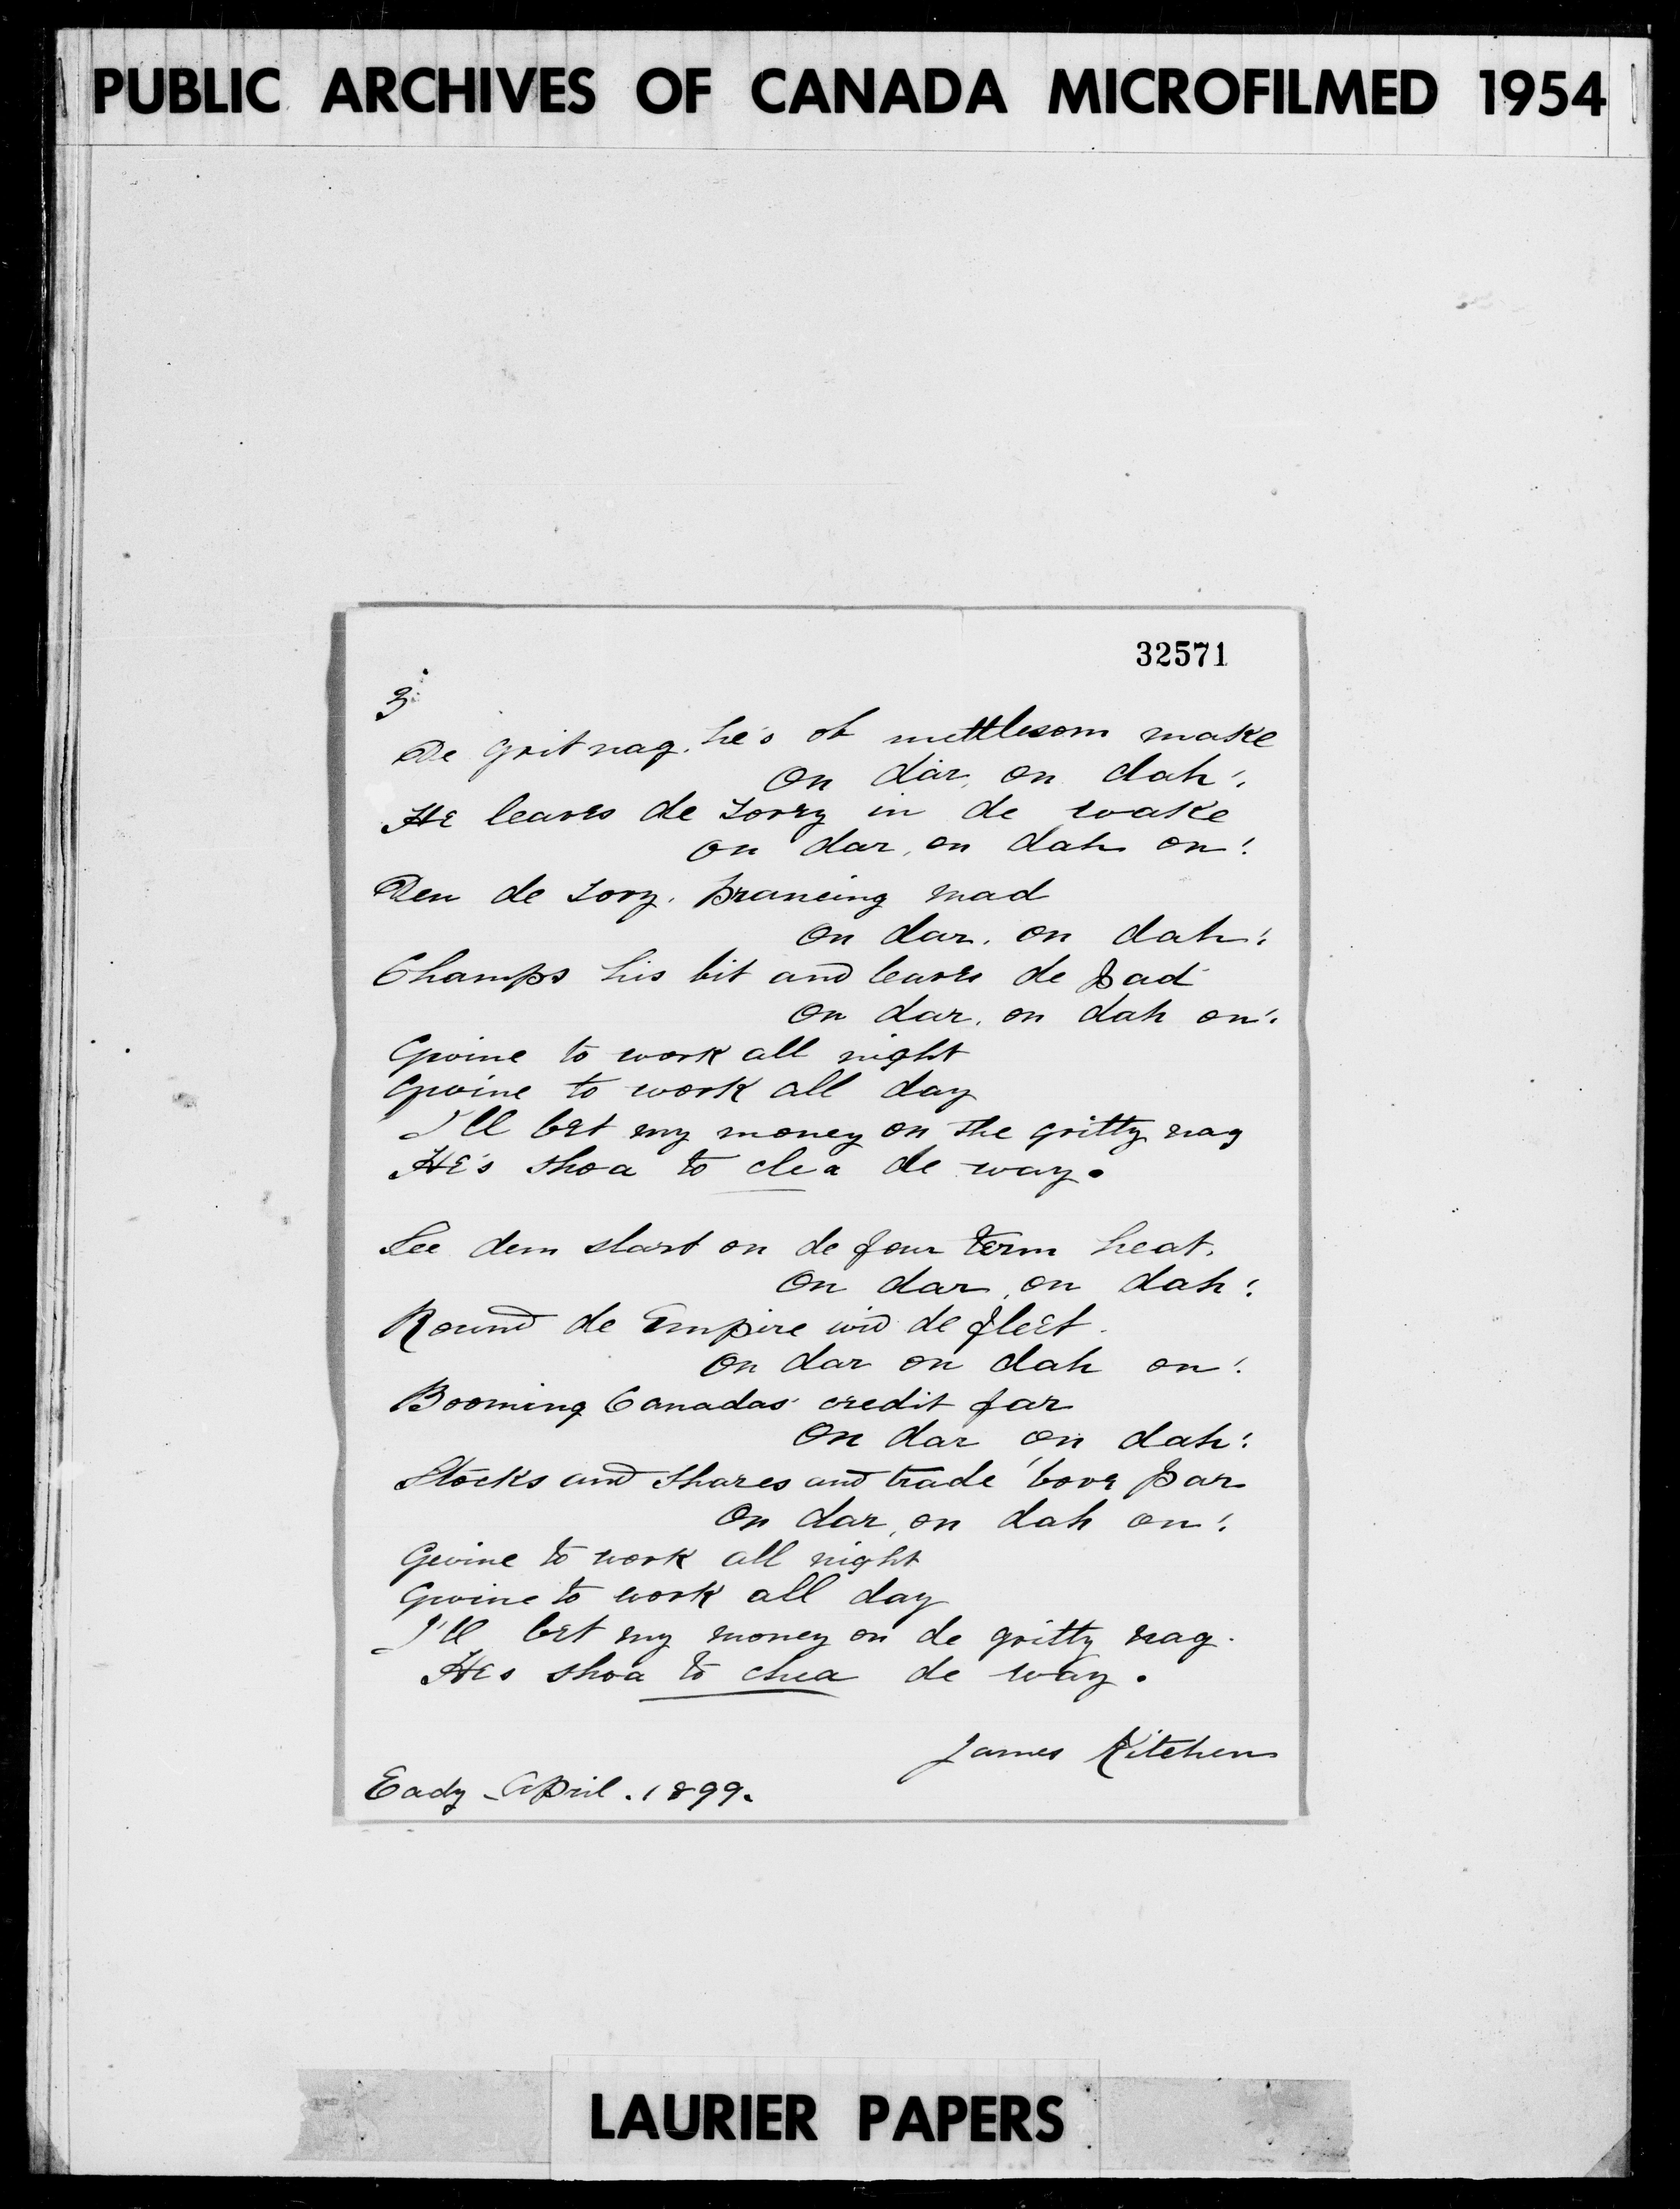 PUBLIC ARCHIVES OF CANADA MICROFILMED 1954
32571
3
De Grit nag, he's ob mettlesom make
On dar, on dah!
He leaves de Torry in de wake
On dar, on dah on!
Den de Tory, prancing mad
On dar, on dah!
Champs his bit and leaves de pad
On dar, on dah on!
Gwine to work all night
Gwine to work all day
I'll bet my money on the gritty nag
He's shoa to clea de way.
See dem start on de four term heat,
On dar, on dah!
Round de Empire wid de fleet.
On dar on dah on!
Booming Canadas credit far
On dar, on dah!
Stocks and shares and trade 'bove par
On dar, on dah on!
Gwine to work all night
Gwine to work all day
I'll bet my money on de gritty nag.
Hes shoa to clea de way.
James Kitchen
Eady - April . 1899.
LAURIER PAPERS